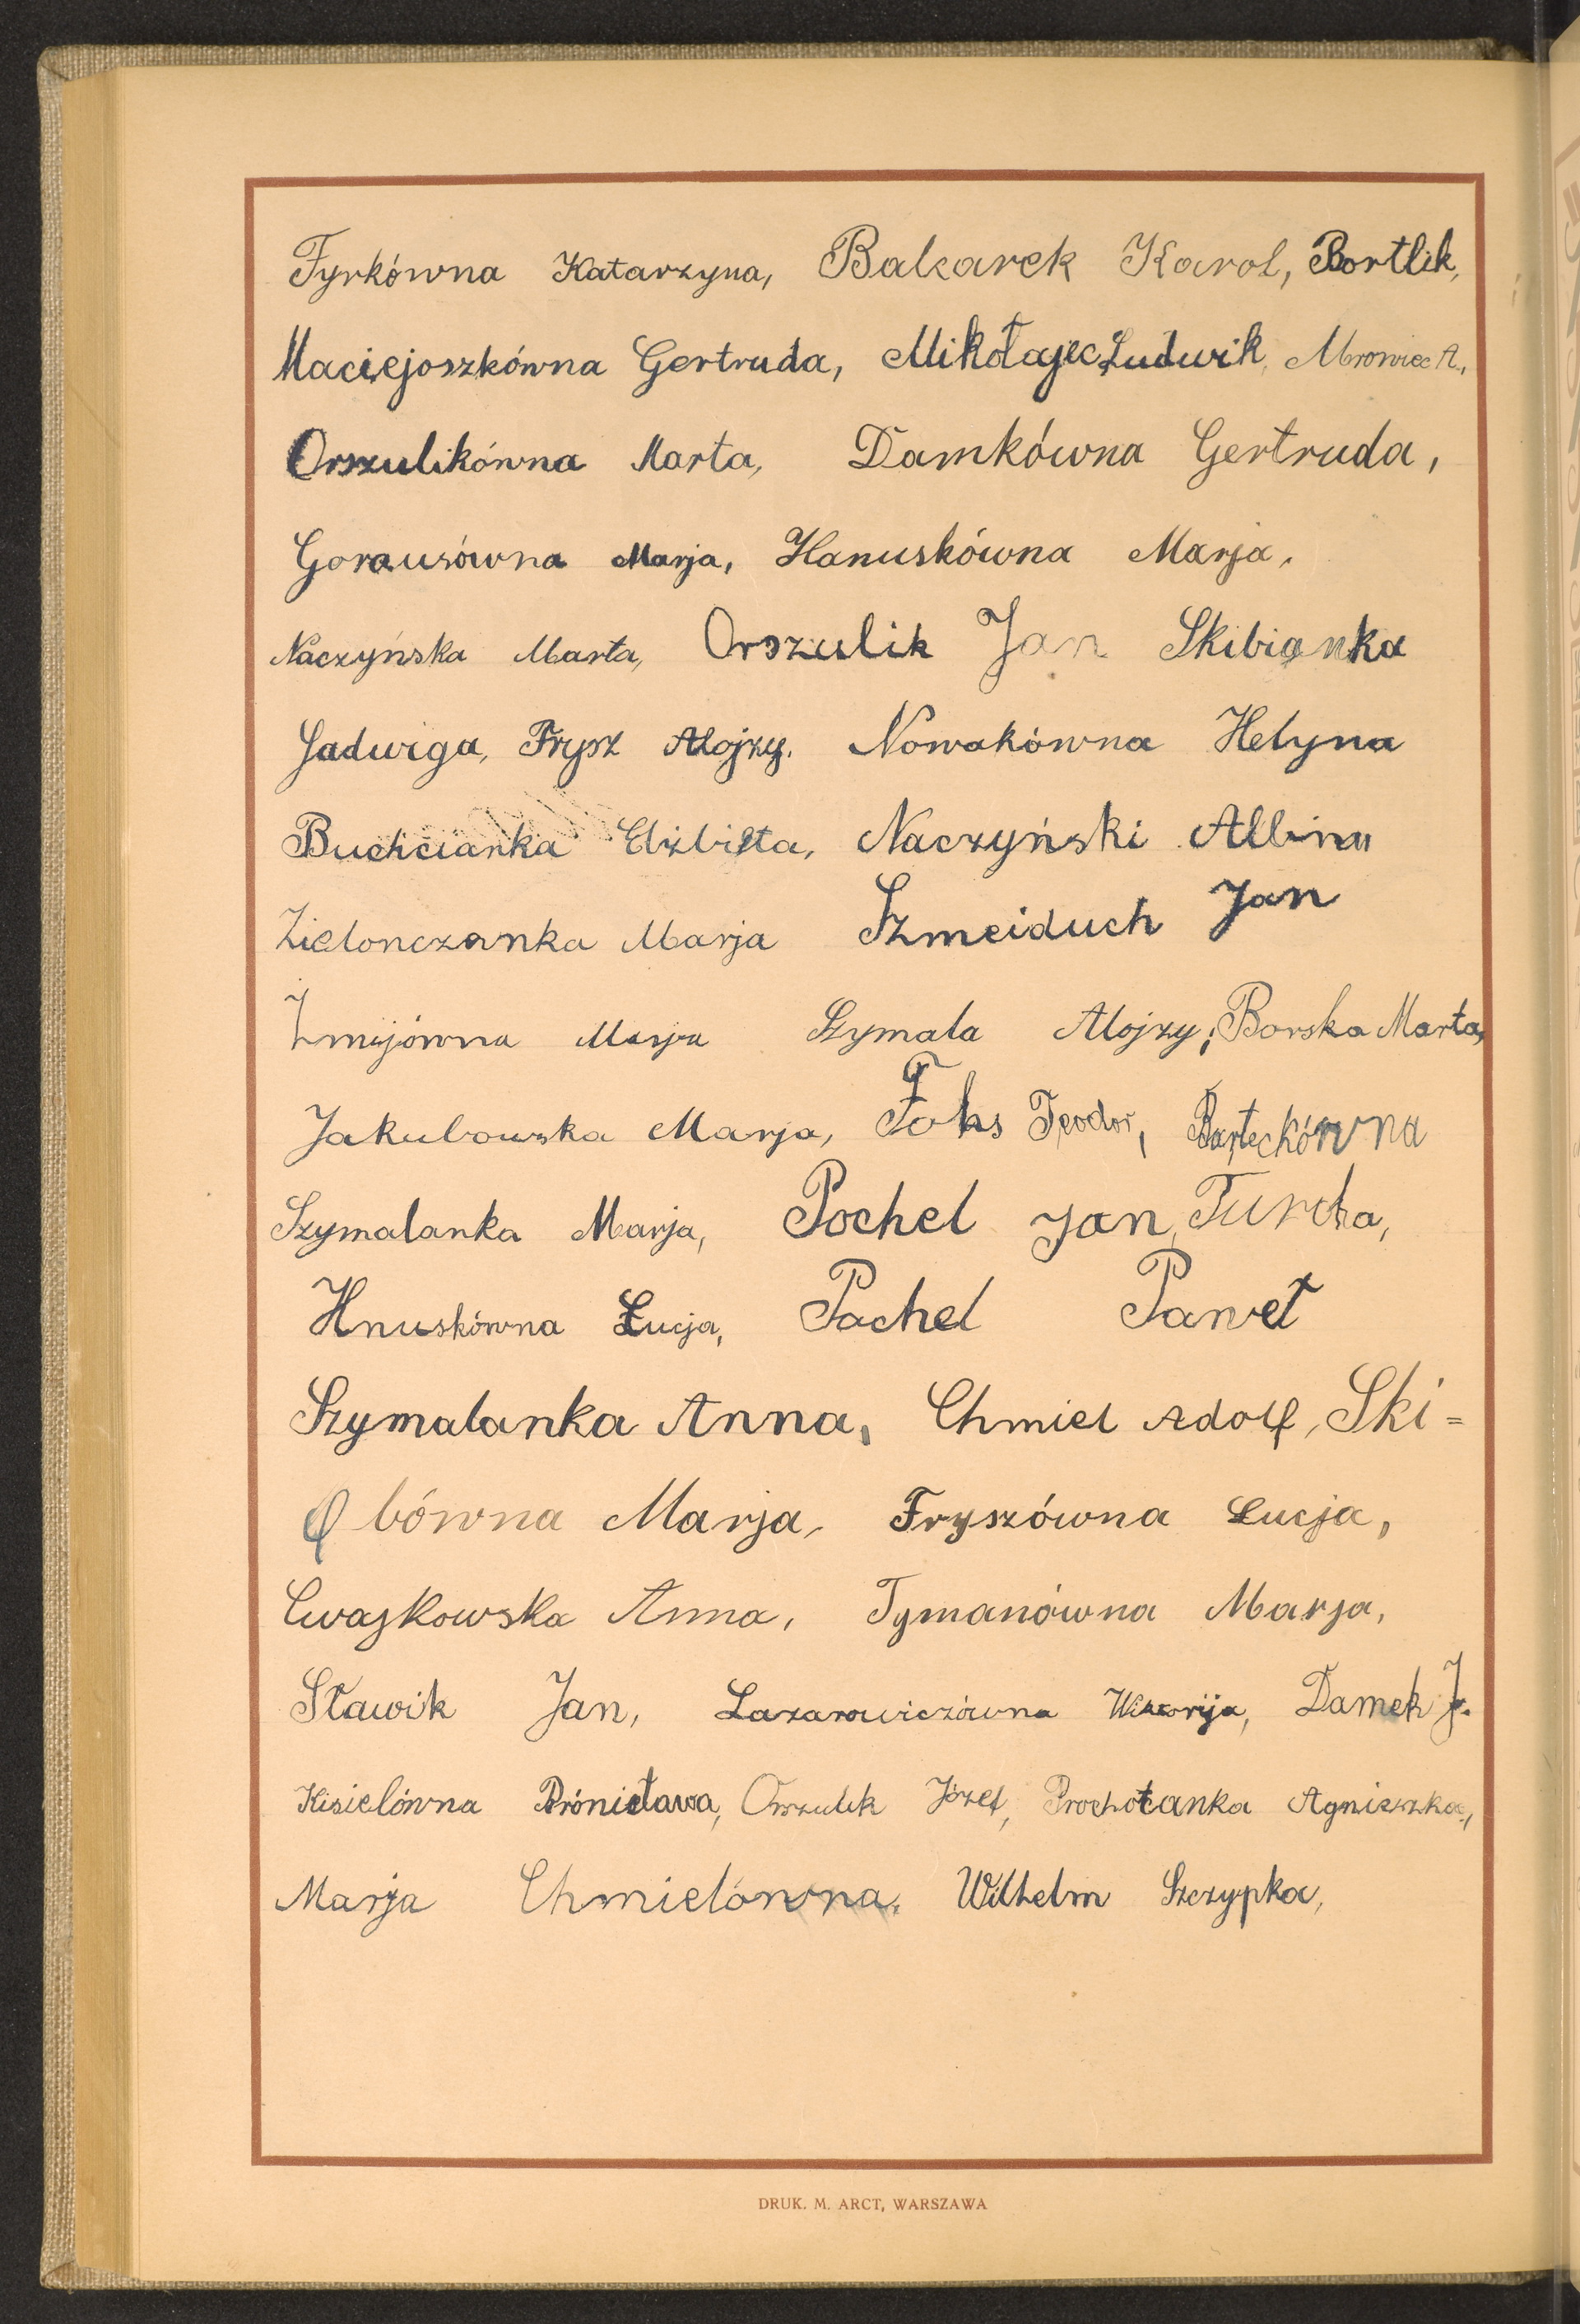 Fyrkówna Katarzyna, Balcarek Karol, Bortlik,
Maciejoszkówna Gertruda, Mikołajec Ludwik, Mrowiec A.,
Orszulikówna Marta, Damkówna Gertruda,
Gorausówna Marja, Hanuskówna Marja.
Naczyńska Marta, Orszulik Jan Skibianka
Jadwiga, Frysz Alojzy. Nowakówna Helyna
Buchcianka Elżbieta, Naczyński Albin
Zielonczanka Marja Szmeiduch Jan
Żmijówna Marja Szymala Alojzy, Borska Marta,
Jakubowska Marja, Foks Teodor, Barteckówna
Szymalanka Marja, Pochel Jan, Turcha,
Hnuskówna Łucja, Pachel Paweł
Szymalanka Anna, Chmiel Adolf, Ski=
bówna Marja, Fryszówna Łucja,
Cwajkowska Anna, Tymanówna Marja,
Sławik Jan, Lazarowiczówna Wiktorija, Damek J.
Kisielówna Brónisława, Orszulik Józef, Prochotanka Agnieszka,
Marja Chmielówna, Wilhelm Szczypka,
DRUK. M. ARCT, WARSZAWA